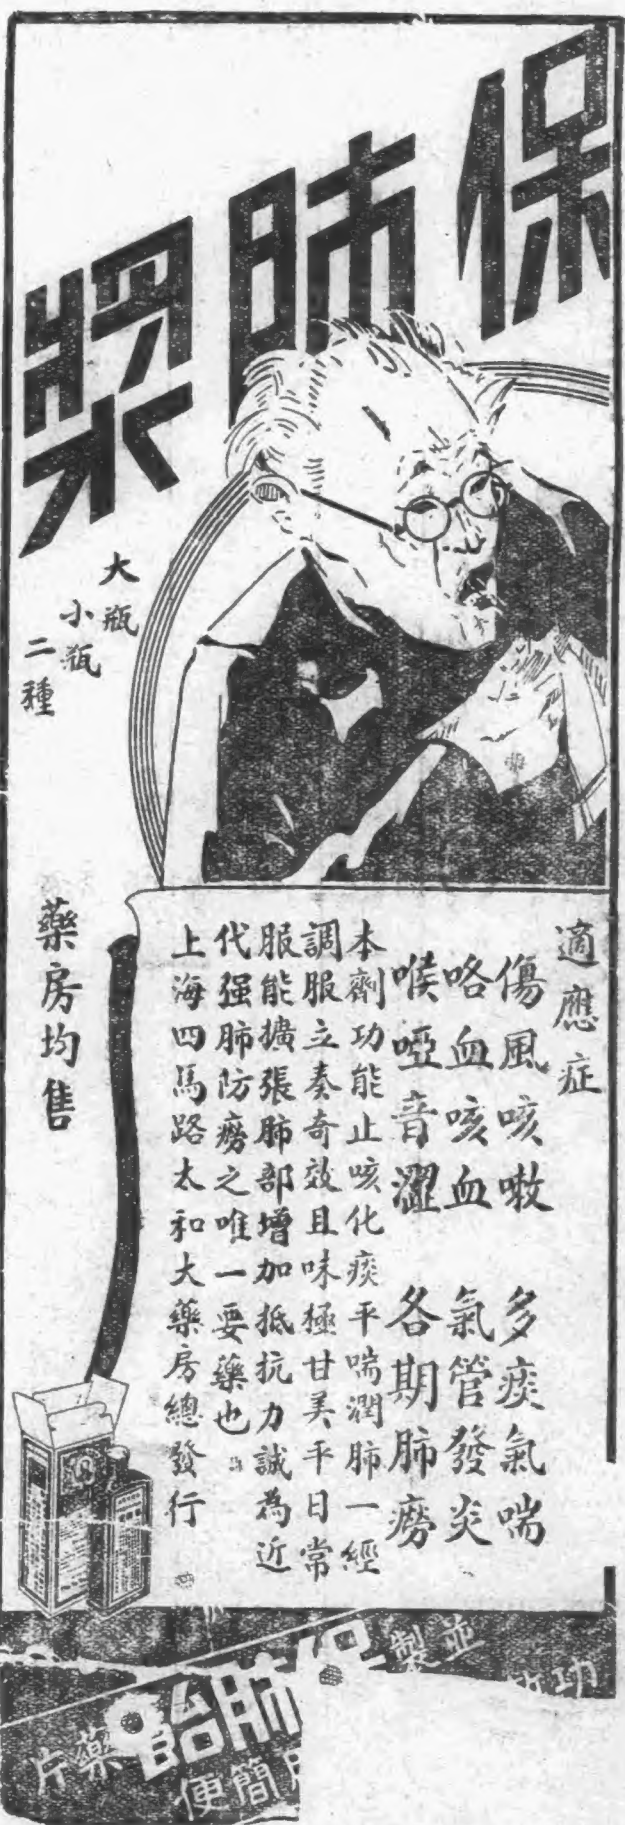 保肺漿
大瓶
小瓶
二種
適應症
傷風咳嗽 多痰氣喘
咯血咳血 氣管發炎
喉啞音澀 各期肺癆
本劑功能止咳化痰平喘潤肺一經
調服立奏奇效且味極甘美平日常
服能擴張肺部增加抵抗力誠為近
代强肺防癆之唯一要藥也。
上海四馬路太和大藥房總發行
藥房均售
並製
保肺飴
藥片
功
簡便